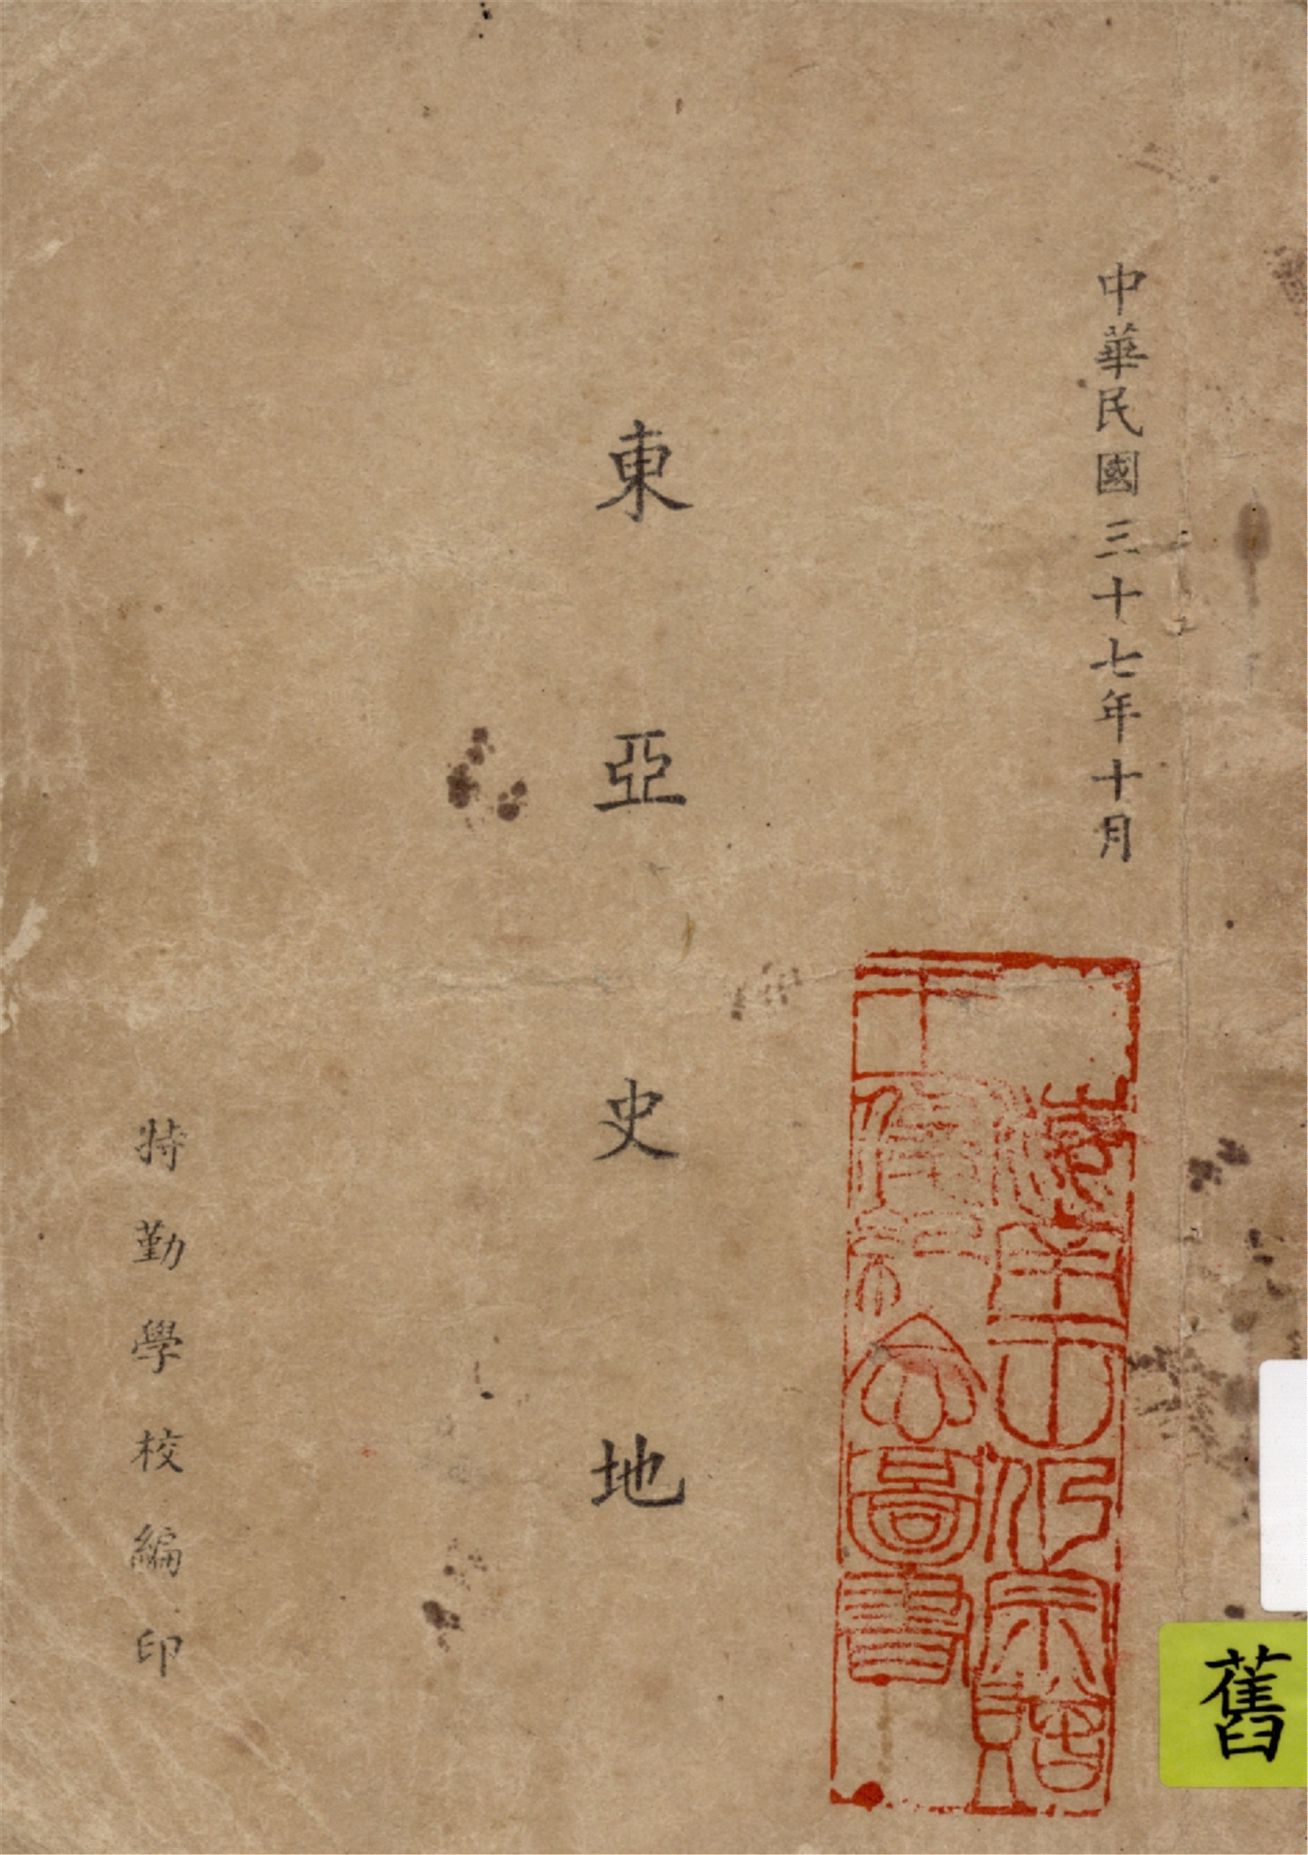 中華民國三十七年十月
東亞史地
特勤學校編印
圖書
舊